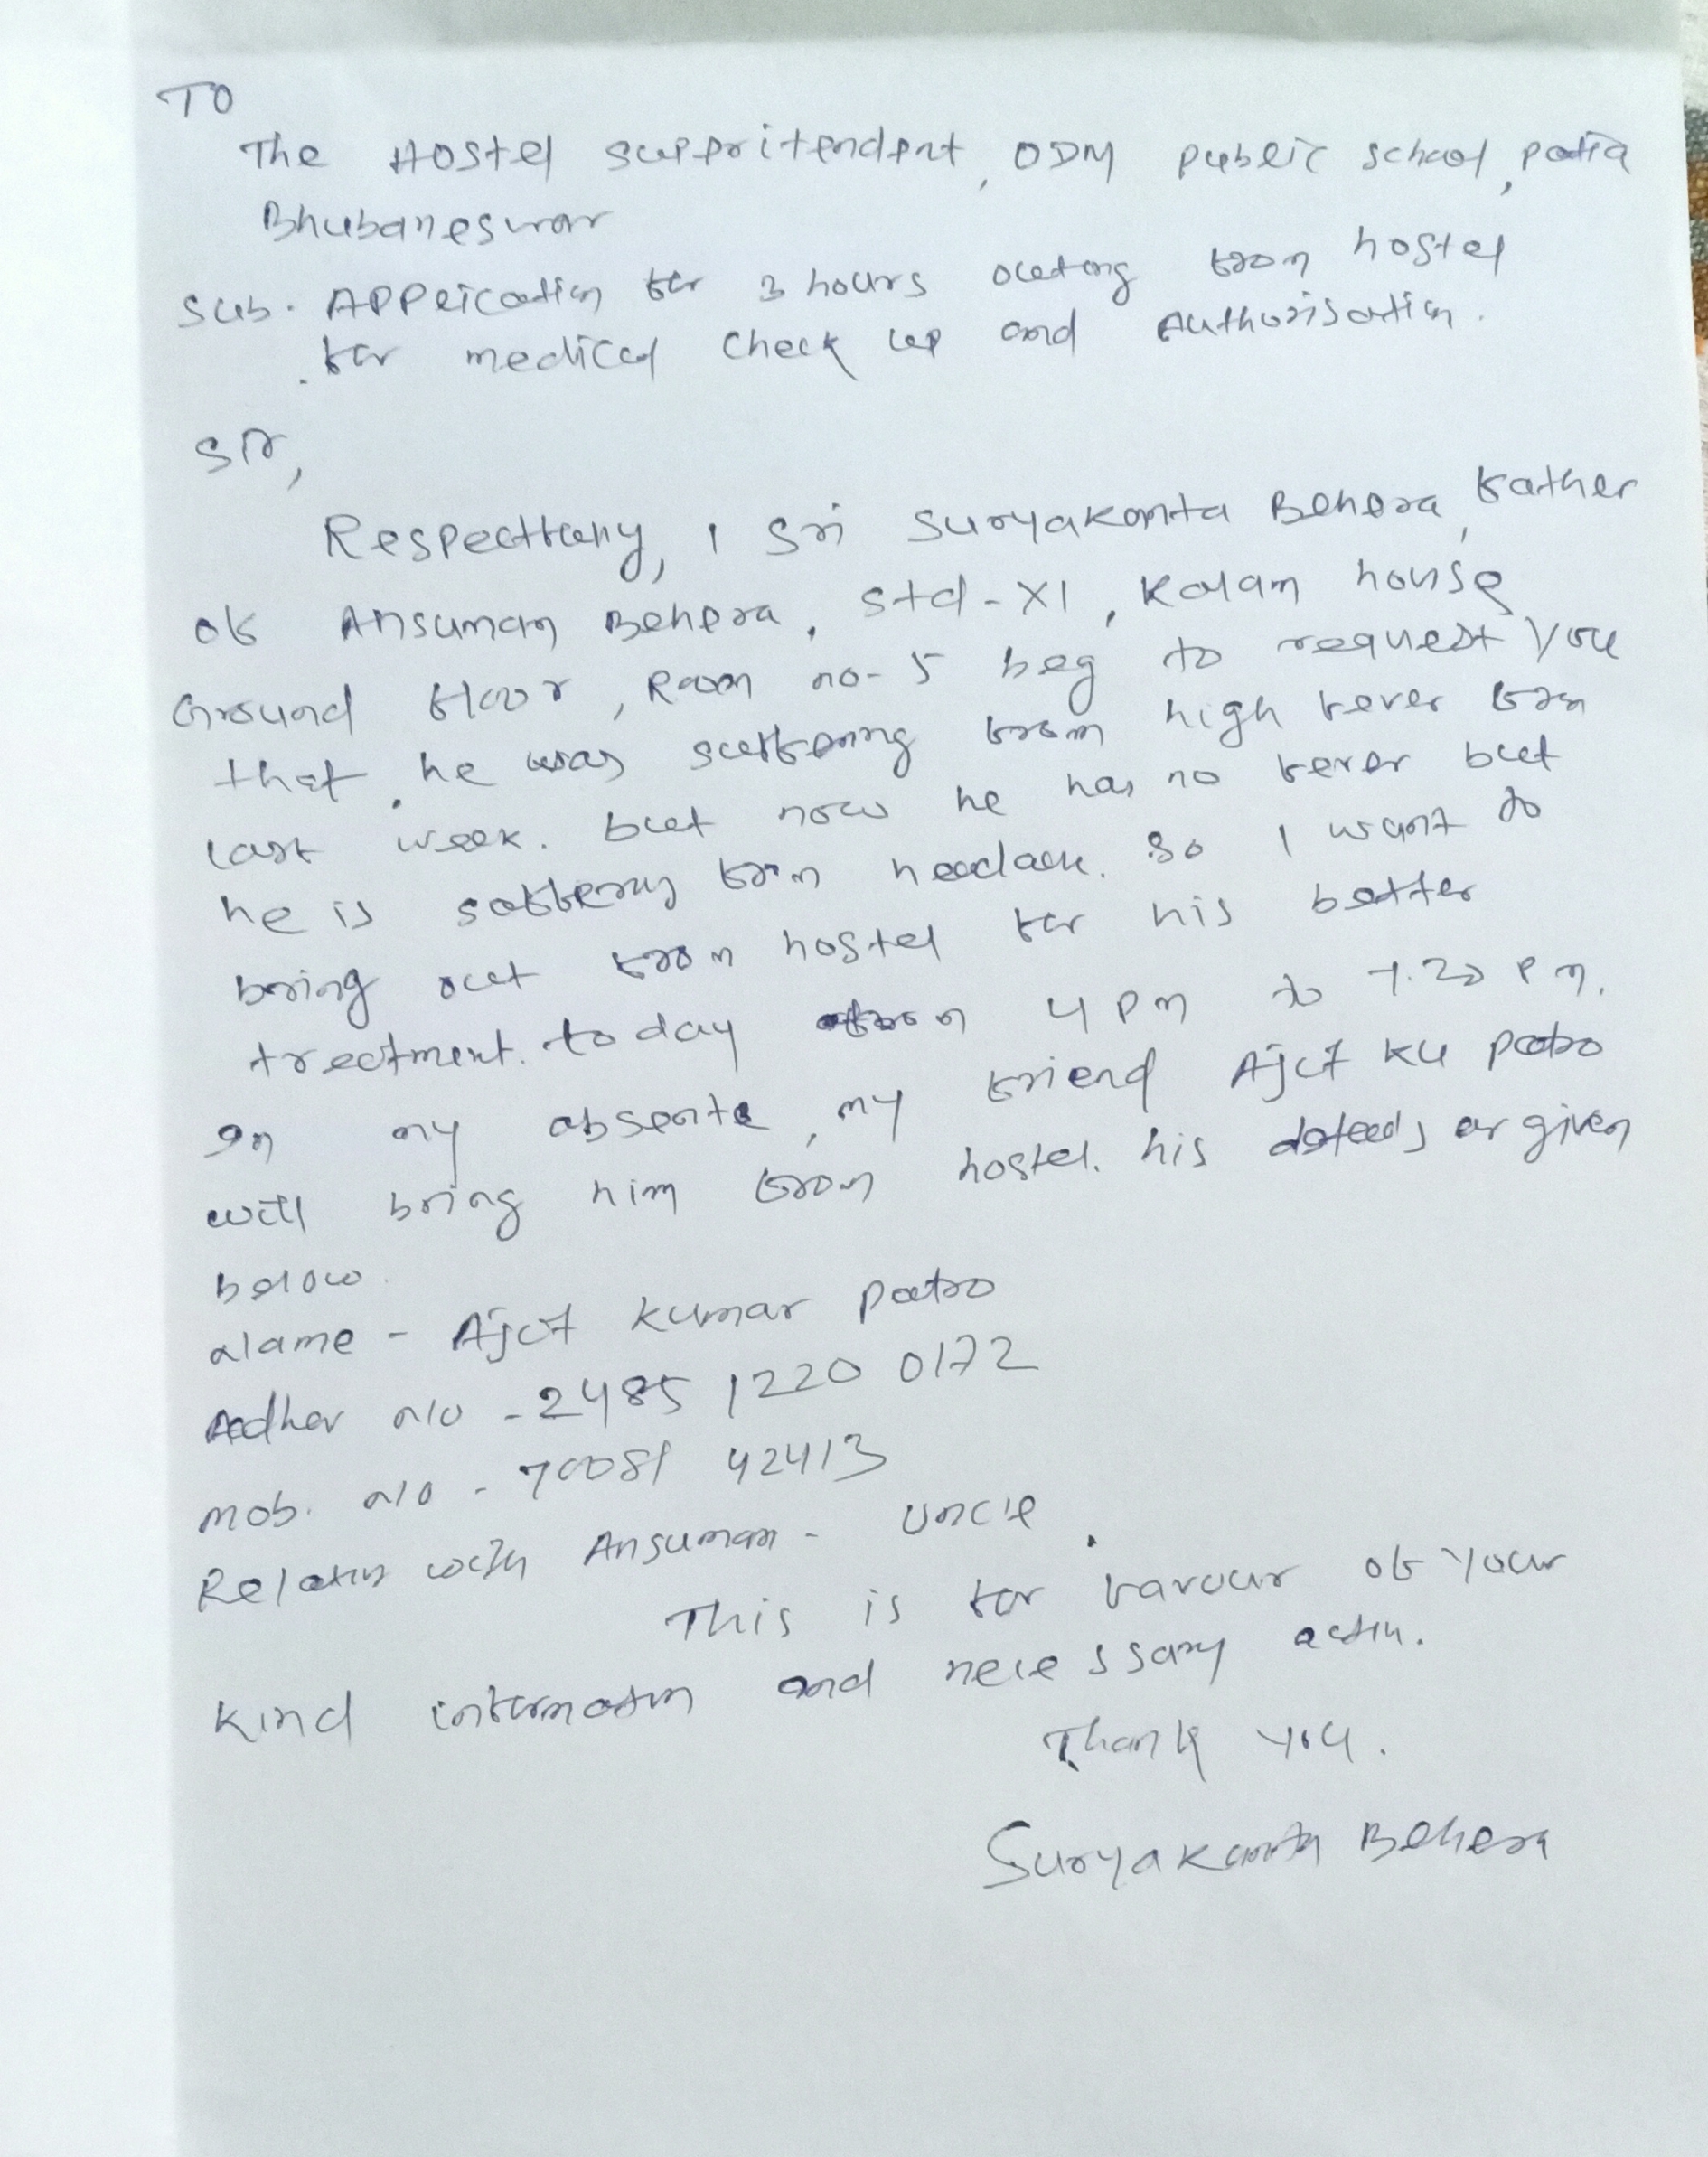 TO
The Hostel suppritendent, ODM public school, patia
Bhubaneswar
Sub. Application for 3 hours outing from hostel
for medical check up and Authorisation.
Sir,
Respectfully, I Sri Suryakanta Behera, father
of Ansuman Behera, std-XI, Kalam house
Ground floor, Room no-5 beg to request you
that, he was suffering from high fever from
last week. but now he has no fever but
he is suffering from headace. So I want to
bring out from hostel for his better
treatment. today from 4 pm to 7.20 pm.
In my absente, my friend Ajit Ku Patro
will bring him from hostel. his details ar given
below.
Name - Ajit Kumar Patro
Aadhar No - 2485 1220 0172
Mob. No - 70081 42413
Relation with Ansuman - Uncle.
This is for favour of your
kind information and necessary action.
Thank you.
Suryakanta Behera